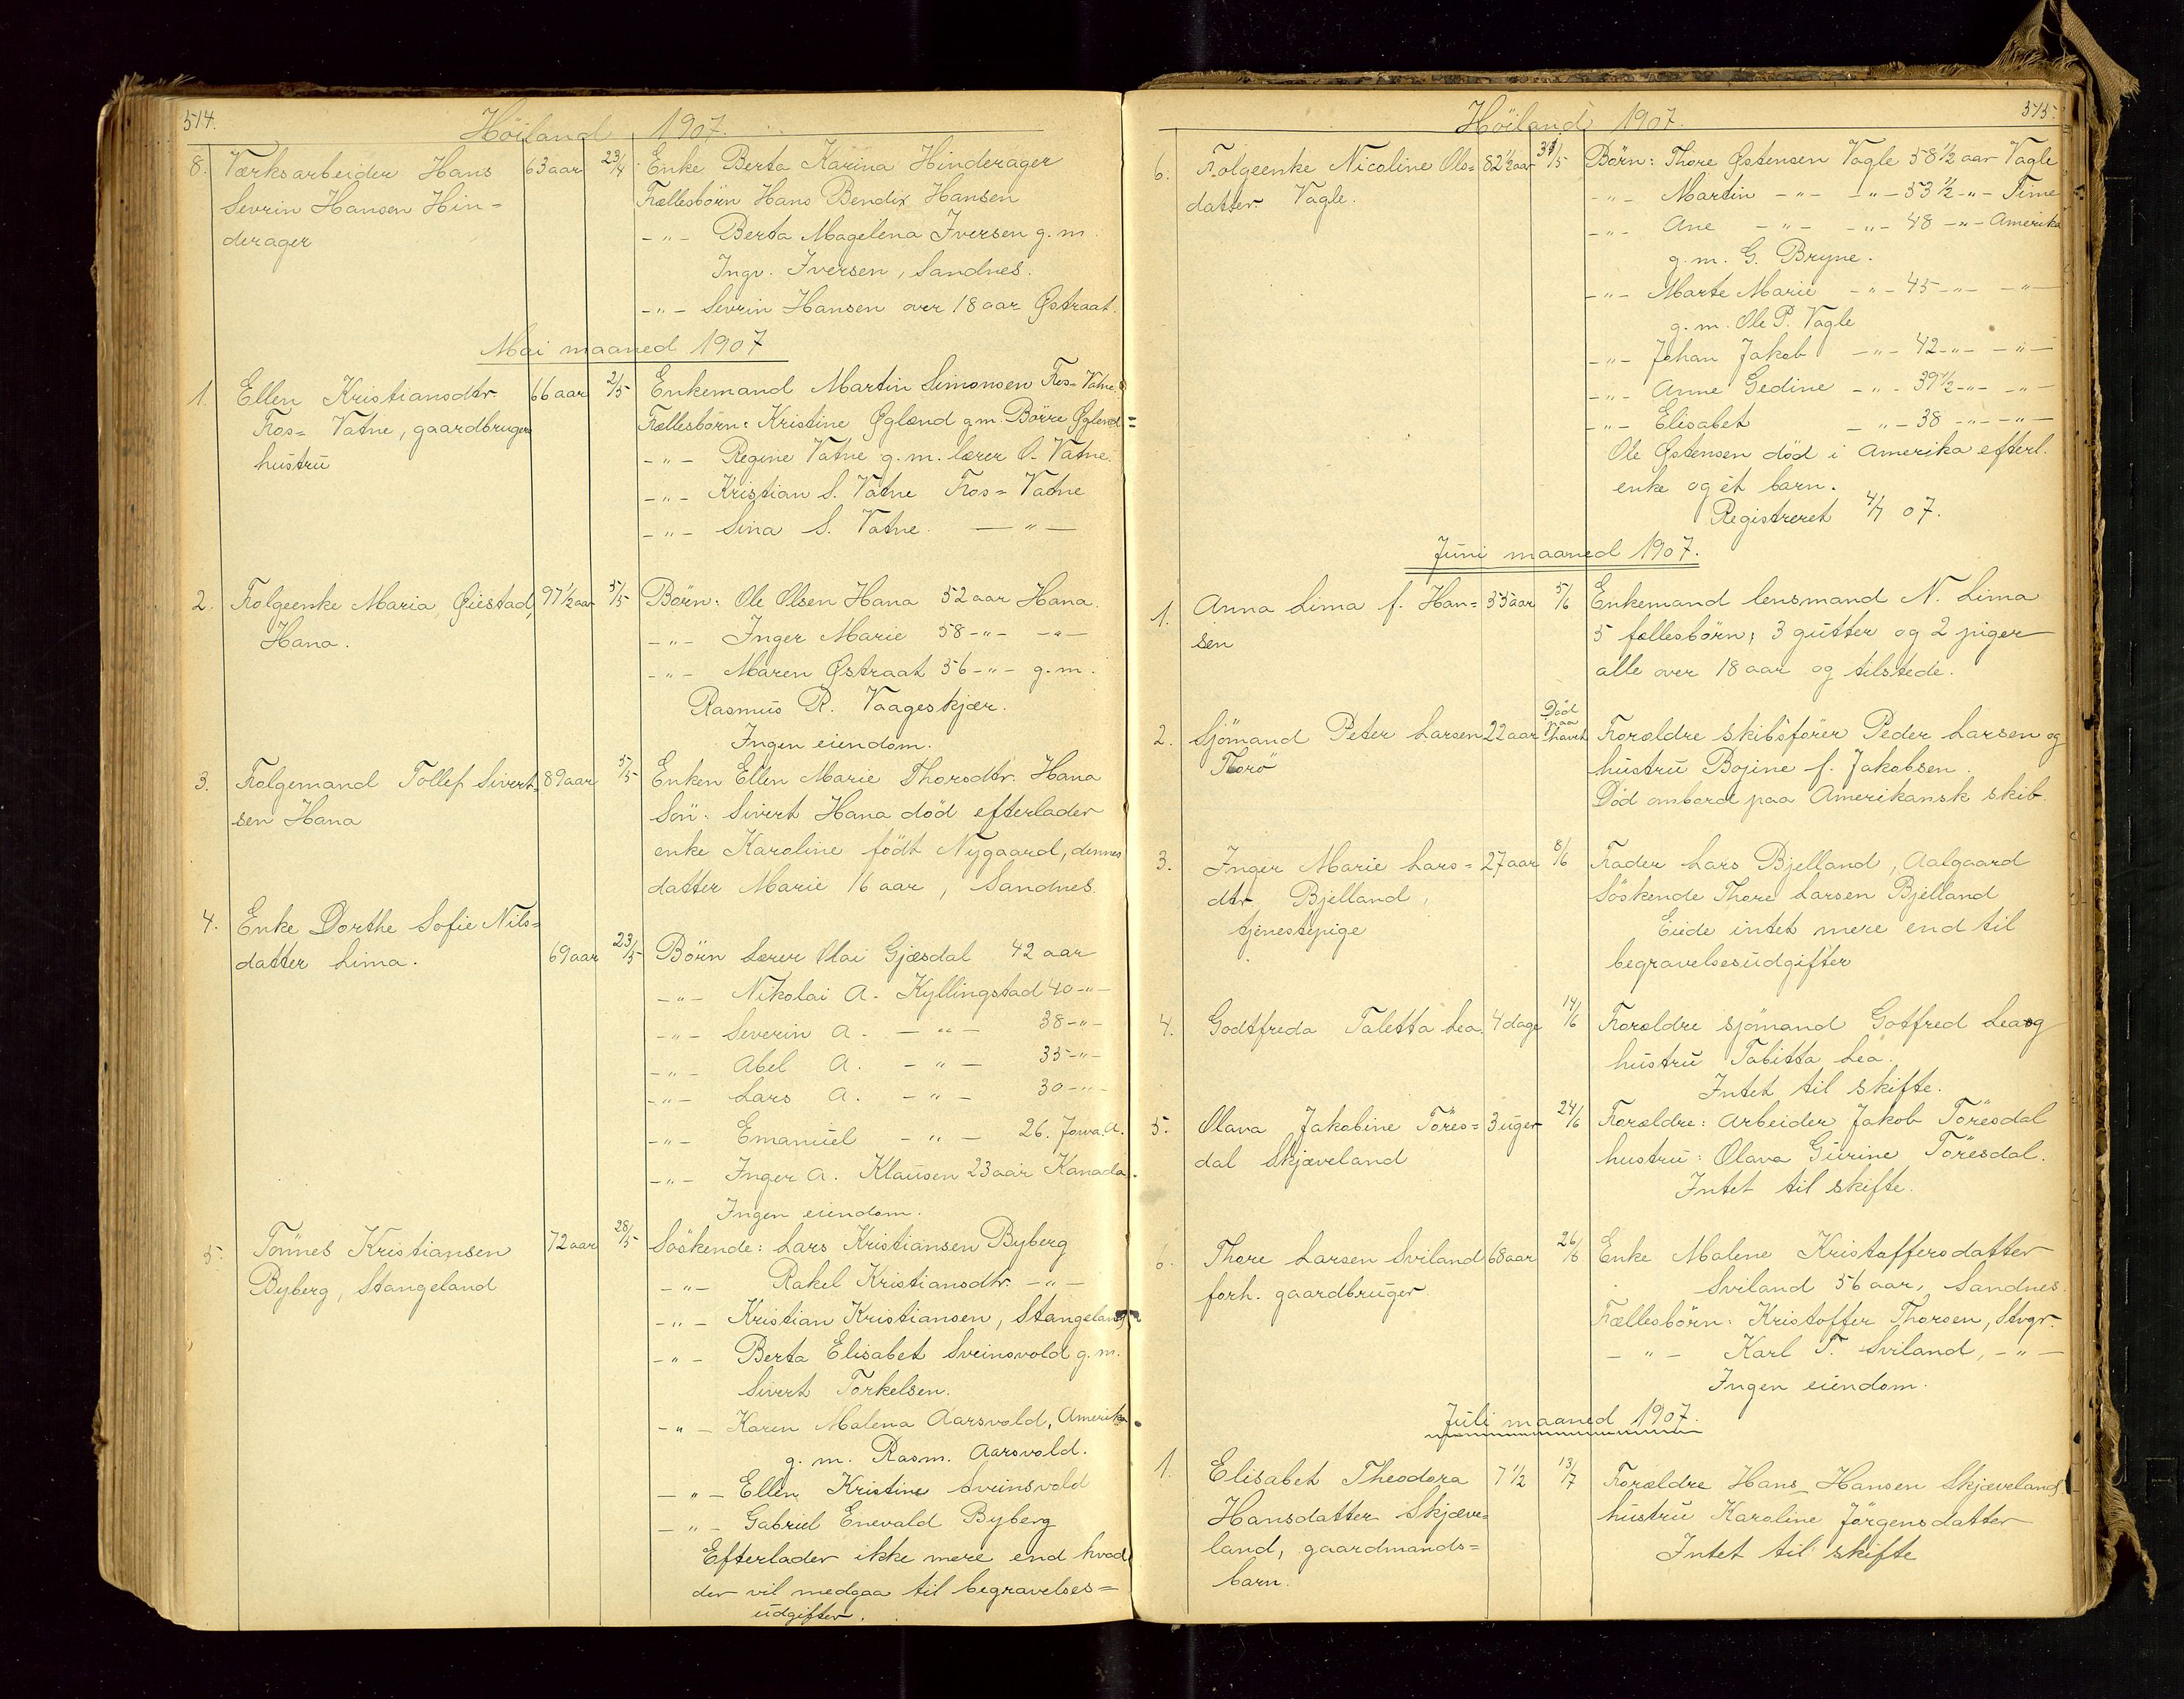 514.
Höiland 1907.
8. Værksarbeider Hans 63 aar 23/4 Enke Berta Karina Hinderager
Sevrin Hansen Hin= Fællesbörn Hans Bendix Hansen
derager -"- Berta Magelena Iversen g.m.
Ingv. Iversen, Sandnes.
-"- Sevrin Hansen over 18 aar Østraat.
Mai maaned 1907
1. Ellen Kristiansdtr. 66 aar 2/5 Enkemand Martin Simonsen Fos= Vatne
Fos= Vatne, gaardbruger Fællesbörn: Kristine Øglænd g.m. Börre Øglænd
hustru -"- Regine Vatne g.m. lærer O. Vatne.
-"- Kristian S. Vatne Fos= Vatne
-"- Sina S. Vatne. -"-
2. Folgeenke Maria Øiestad, 97 1/2 aar 5/5 Börn: Ole Olsen Hana 52 aar Hana.
Hana. -"- Inger Marie 58 -"- -"-
-"- Maren Østraat 56 -"- g.m.
Rasmus R. Vaageskjær.
Ingen eiendom.
3. Folgemand Tollef Sivert= 89 aar 5/5 Enken Ellen Marie Thorsdtr. Hana
sen Hana Sön: Sivert Hana död efterlader
enke Karoline födt Nygaard, dennes
datter Marie 16 aar, Sandnes.
4. Enke Dorthe Sofie Nils=
datter Lima. 69 aar 23/5 Börn Lærer Olai Gjæsdal 42 aar
-"- Nikolai A. Kyllingstad 40 -"-
-"- Severin A. -"- 38 -"-
-"- Abel A. -"- 35 -"-
-"- Lars A. -"- 30 -"-
-"- Emanuel -"- 26. Jowa. A.
-"- Inger A. Klausen 23 aar Kanada.
Ingen eiendom.
5. Tönnes Kristiansen 72 aar 28/5 Söskende: Lars Kristiansen Byberg
Byberg, Stangeland -"- Rakel Kristiansdtr. -"-
-"- Kristian Kristiansen, Stangeland
-"- Berta Elisabet Sveinsvold g.m.
Sivert Torkelsen.
-"- Karen Malena Aarsvold, Amerika.
g.m. Rasm. Aarsvold.
-"- Ellen Kristine Sveinsvold
-"- Gabriel Enevald Byberg
Efterlader ikke mere end hvad
der vil medgaa til begravelses=
udgifter.
515.
Höiland 1907.
6. Folgeenke Nicoline Ols= 82 1/2 aar 31/5 Börn: Thore Østensen Vagle 58 1/2 aar Vagle
datter Vagle. -"- Martin -"- -"- 53 1/2 -"- Time
-"- Ane -"- -"- 48 -"- Amerika
g.m. G. Bryne.
-"- Marte Marie -"- 45 -"- -"-
g.m. Ole P. Vagle
-"- Johan Jakob -"- 42 -"- -"-
-"- Anne Gedine -"- 39 1/2 -"- -"-
-"- Elisabet -"- 38 -"- -"-
Ole Østensen död i Amerika efterl.
enke og ét barn.
Registreret 4/7 07.
Juni maaned 1907.
1. Anna Lima f. Han= 55 aar 5/6 Enkemand lensmand N. Lima
sen 5 fællesbörn; 3 gutter og 2 piger
alle over 18 aar og tilstede.
2. Sjömand Peter Larsen 22 aar Död paa havet Forældre skibsförer Peder Larsen og
Florö hustru Bojine f. Jakobsen.
Död ombord paa Amerikansk skib.
3. Inger Marie Lars= 27 aar 8/6 Fader Lars Bjelland, Aalgaard
dtr. Bjelland, Söskende Thore Larsen Bjelland
tjenestepige Eiede intet mere end til
begravelsesudgifter
4. Godtfreda Taletta Lea. 4 dage 14/6 Forældre sjömand Gotfred Lea og
hustru Tabitta Lea.
Intet til skifte.
5. Olava Jakobine Töres= 3 uger 24/6 Forældre: Arbeider Jakob Töresdal
dal Skjæveland hustru: Olava Gurine Töresdal.
Intet til skifte.
6. Thore Larsen Sviland 68 aar 26/6 Enke Malene Kristoffersdatter
forh. gaardbruger Sviland 56 aar, Sandnes.
Fællesbörn: Kristoffer Thorsen, Stvgr.
-"- Karl T. Sviland, -"-
Ingen eiendom.
Juli maaned 1907.
1. Elisabet Theodora 7 1/2 13/7 Forældre Hans Hansen Skjæveland
Hansdatter Skjæve= hustru Karoline Jörgensdatter
land, gaardmands= Intet til skifte
barn.